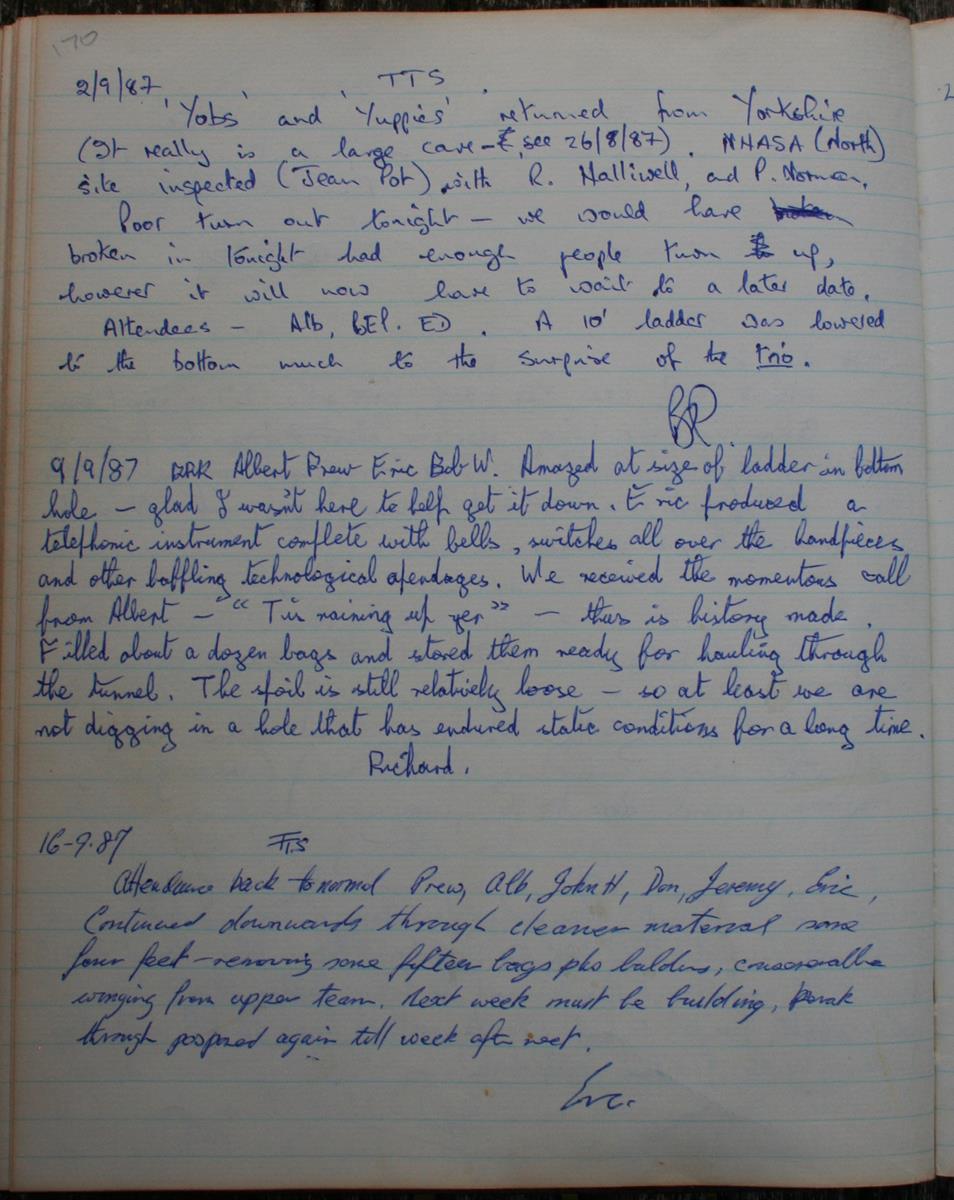 170
2/9/87 TTS
'Yobs' and 'Yuppies' returned from Yorkshire
(It really is a large cave - see 26/8/87). NHASA (North)
site inspected (Jean Pot) with R. Halliwell, and P. Norman.
Poor turn out tonight - we would have
broken in tonight had enough people turn up,
however it will now have to wait to a later date.
Attendees - Alb, BEP. ED. A 10' ladder was lowered
to the bottom much to the surprise of the trio.
9/9/87 Albert Prew Eric Bob W. Amazed at size of ladder in bottom
hole - glad I wasn't here to help get it down. Eric produced a
telephonic instrument complete with bells, switches all over the handpieces
and other baffling technological apendages. We received the momentous call
from Albert - "Tis raining up yer" - thus is history made.
Filled about a dozen bags and stored them ready for hauling through
the tunnel. The spoil is still relatively loose - so at least we are
not digging in a hole that has endured static conditions for a long time.
Richard.
16-9-87 TTS
Attendance back to normal Prew, Alb, John H, Don, Jeremy, Eric,
Continued downwards through cleaner material some
four feet - removing some fifteen bags plus bolders,
winging from upper team. Next week must be building, break
through posponed again till week after next.
Eric.